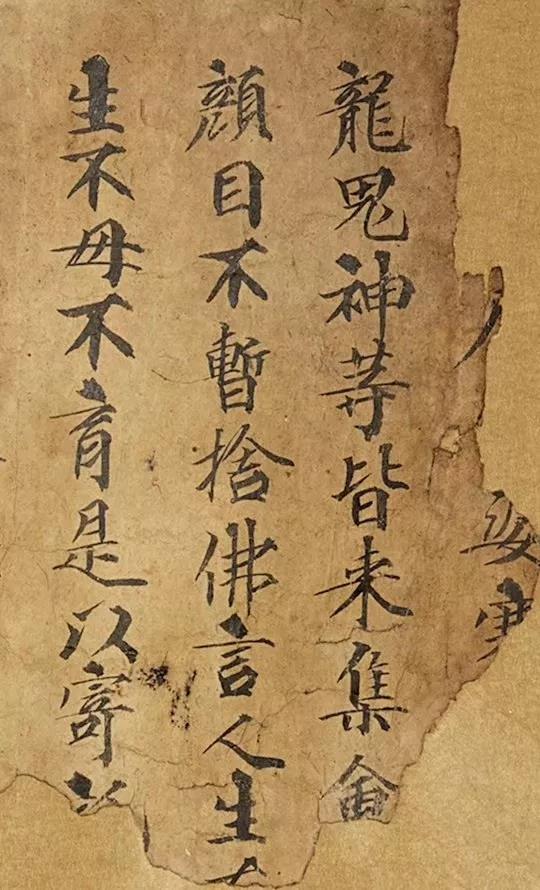 龍鬼神等皆来集會
顔目不暫捨佛言人生
生不母不育是以寄